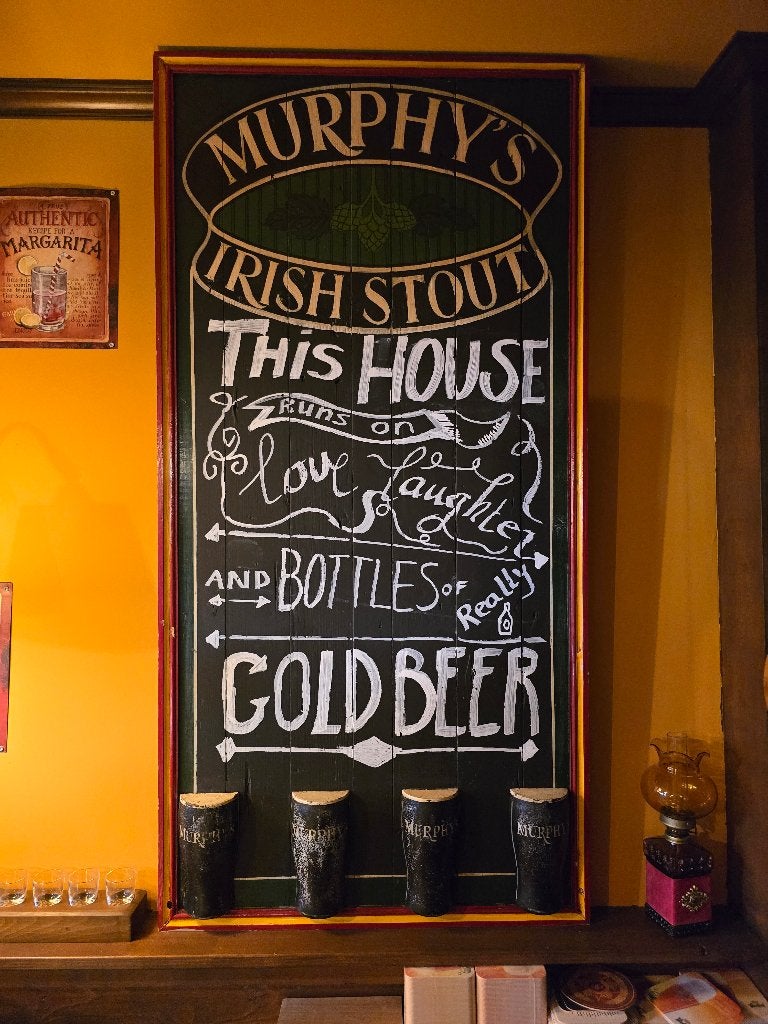 MURPHY'S
IRISH STOUT
THIS HOUSE
RUNS ON
love & laughter
AND BOTTLES OF Really
COLD BEER
MURPHY'S
MURPHY
MURPHY'S
MURPHY
AUTHENTIC
RECIPE FOR A
MARGARITA